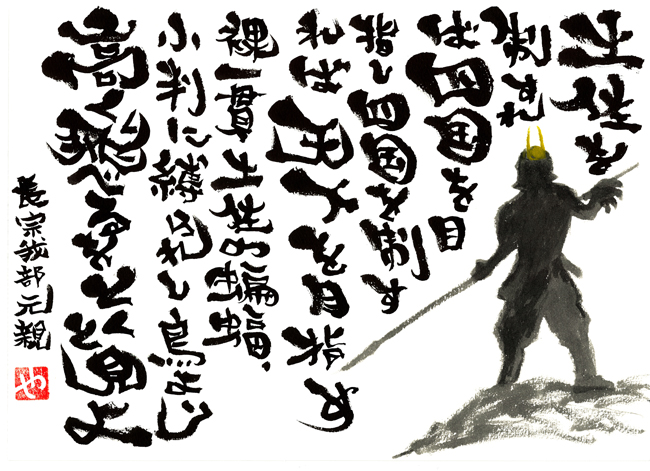 土佐を
制すれ
ば四国を目
指し四国を制す
れば を目指
裸一貫 土性の蝙蝠、
小判に縛られて鳥より
高く飛べるをとく見よ
長宗我部元親
や